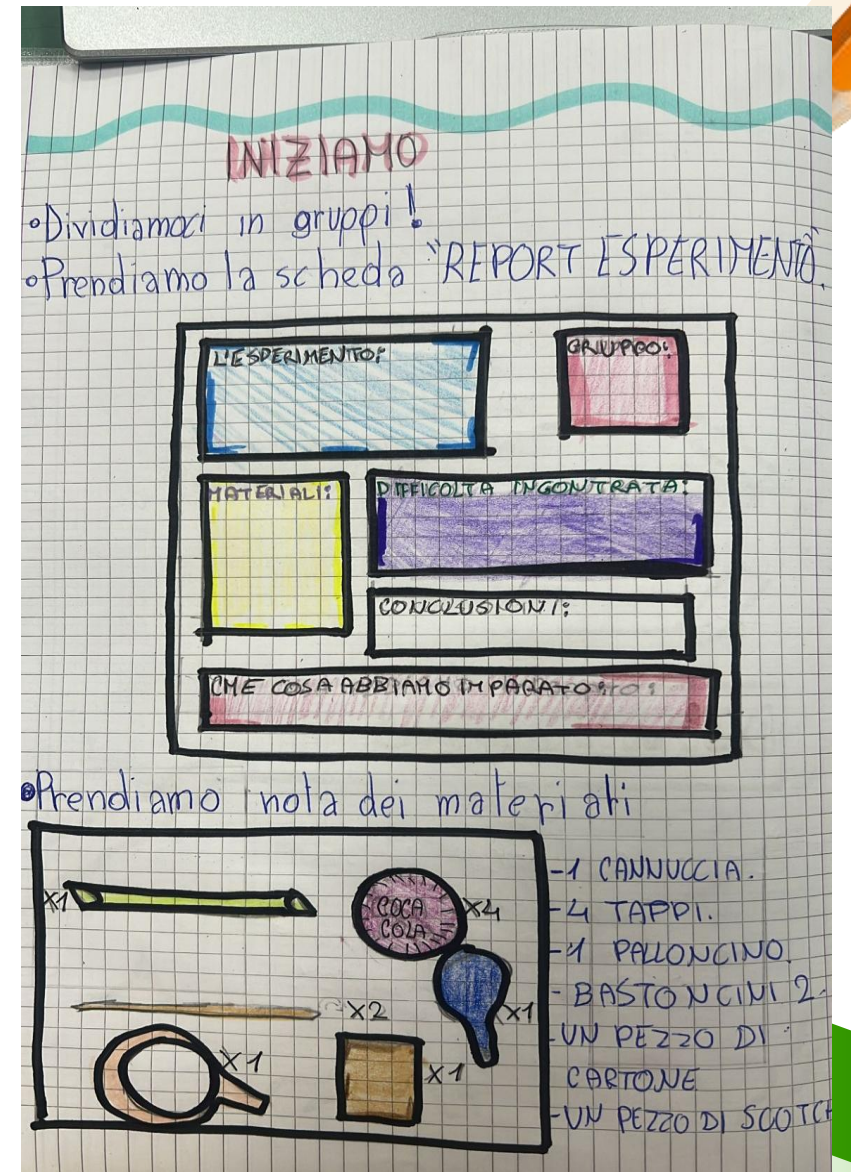 INIZIAMO
•Dividiamoci in gruppi!
•Prendiamo la scheda "REPORT ESPERIMENTO".
L'ESPERIMENTO:
GRUPPO:
MATERIALI:
DIFFICOLTA INCONTRATA:
CONCLUSIONI:
CHE COSA ABBIAMO IMPARATO:
•Prendiamo nota dei materiali
X1
COCA
COLA
X4
X2
X1
X1
X1
-1 CANNUCCIA.
-4 TAPPI.
-1 PALLONCINO.
- BASTONCINI 2.
-UN PEZZO DI
CARTONE
-UN PEZZO DI SCOTCH